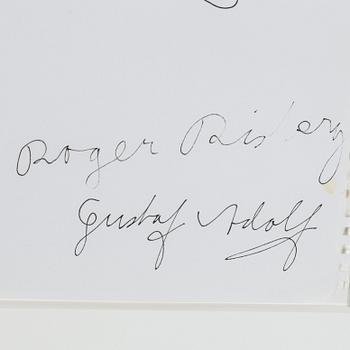 Roger Risberg
Gustaf Adolf